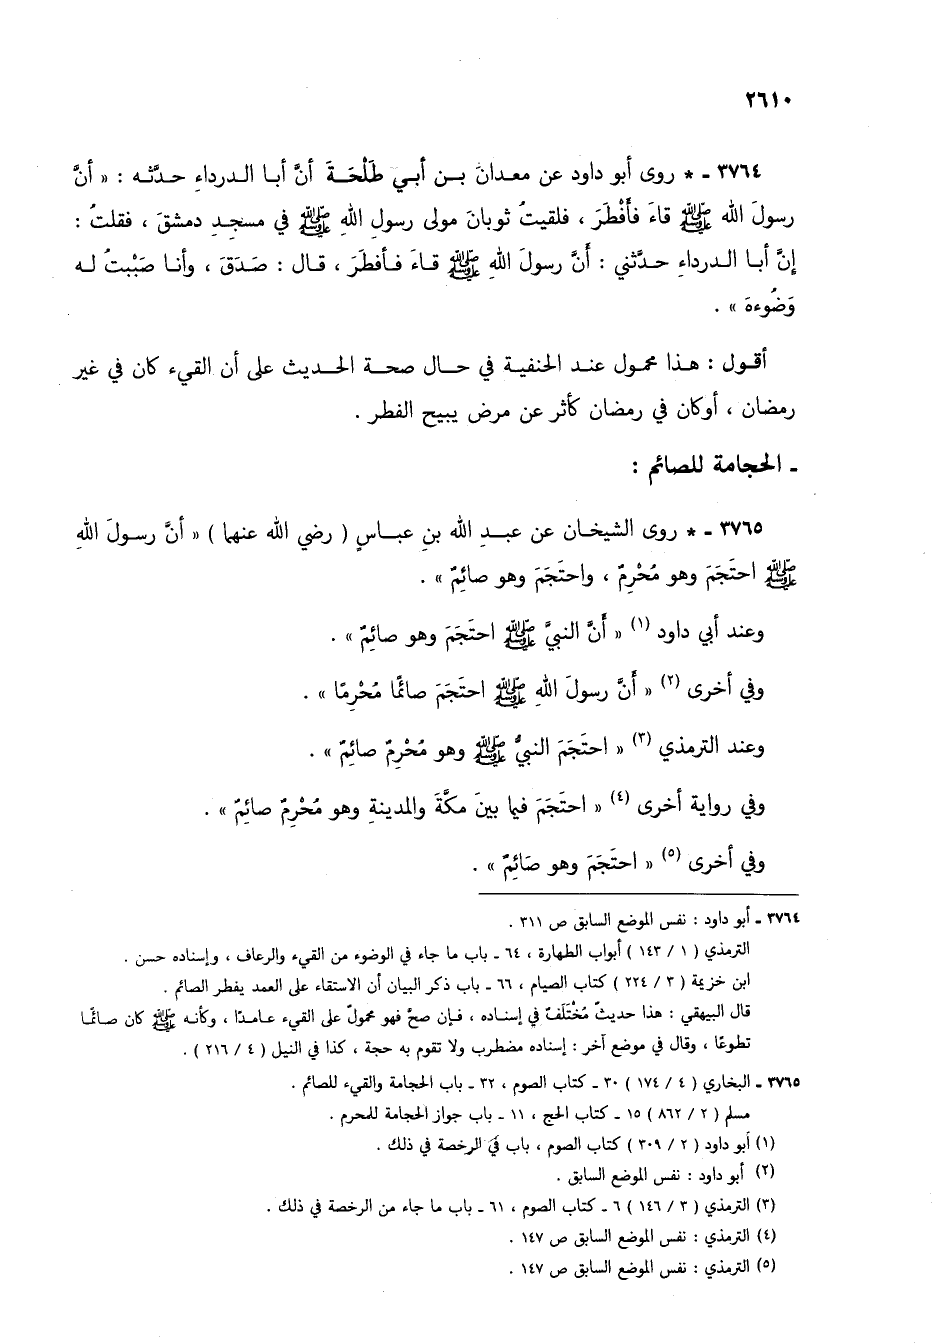 ٢٦١٠
٣٧٦٤ ـ * روى أبو داود عن معدانَ بـن أبي طَلْحَـةَ أنَّ أبـا الـدرداءِ حدثَـه : « أنَّ
رسولَ الله ﷺ قاءَ فأَفْطَرَ ، فلقيتُ ثوبانَ مولى رسول اللهِ ﷺ في مسجدِ دمشقَ ، فقلتُ :
إنَّ أبـا الـدرداءِ حـدَّثني : أَنَّ رسولَ اللهِ ﷺ قـاءَ فـأفطرَ ، قـال : صَـدَقَ ، وأنـا صَبْبتُ لـه
وَضُوءهَ » .
أقـول : هـذا محمول عنـد الحنفيـة في حـال صحـة الحـديث على أن القيء كان في غير
رمضان ، أوكان في رمضان كأثر عن مرض يبيح الفطر .
ـ الحجامة للصائم :
٣٧٦٥ ـ * روى الشيخـان عن عبـدِ اللهِ بنِ عبـاسٍ ( رضي الله عنهما ) « أنَّ رسـولَ اللهِ
ﷺ احتَجَمَ وهو مُحْرِمٌ ، واحتَجَمَ وهو صائِمٌ » .
وعند أبي داود (١) « أَنَّ النبيَّ ﷺ احتَجَمَ وهو صائِمٌ » .
وفي أخرى (٢) « أَنَّ رسولَ اللهِ ﷺ احتَجَمَ صائمًا مُحْرِمًا » .
وعند الترمذي (٣) « احتَجَمَ النبيُّ ﷺ وهو مُحْرِمٌ صائِمٌ » .
وفي رواية أخرى (٤) « احتَجَمَ فيما بينَ مكَّةَ والمدينةِ وهو مُحْرِمٌ صائِمٌ » .
وفي أخرى (٥) « احتَجَمَ وهو صَائِمٌ » .
٣٧٦٤ ـ أبو داود : نفس الموضع السابق ص ٣١١ .
الترمذي ( ١ / ١٤٣ ) أبواب الطهارة ، ٦٤ ـ باب ما جاء في الوضوء من القيء والرعاف ، وإسناده حسن .
ابن خزيمة ( ٣ / ٢٢٤ ) كتاب الصيام ، ٦٦ ـ باب ذكر البيان أن الاستقاء على العمد يفطر الصائم .
قال البيهقي : هذا حديثٌ مُخْتَلَفٌ في إسناده ، فـإن صحَّ فهو محمولٌ على القيء عـامـدًا ، وكأنـه ﷺ كان صـائمًـا
تطوعًا ، وقال في موضع آخر : إسناده مضطرب ولا تقوم به حجة ، كذا في النيل ( ٤ / ٢١٦ ) .
٣٧٦٥ ـ البخاري ( ٤ / ١٧٤ ) ٣٠ ـ كتاب الصوم ، ٣٢ ـ باب الحجامة والقيء للصائم .
مسلم ( ٢ / ٨٦٢ ) ١٥ ـ كتاب الحج ، ١١ ـ باب جواز الحجامة للمحرم .
(١) أبو داود ( ٢ / ٣٠٩ ) كتاب الصوم ، باب في الرخصة في ذلك .
(٢) أبو داود : نفس الموضع السابق .
(٣) الترمذي ( ٣ / ١٤٦ ) ٦ ـ كتاب الصوم ، ٦١ ـ باب ما جاء من الرخصة في ذلك .
(٤) الترمذي : نفس الموضع السابق ص ١٤٧ .
(٥) الترمذي : نفس الموضع السابق ص ١٤٧ .